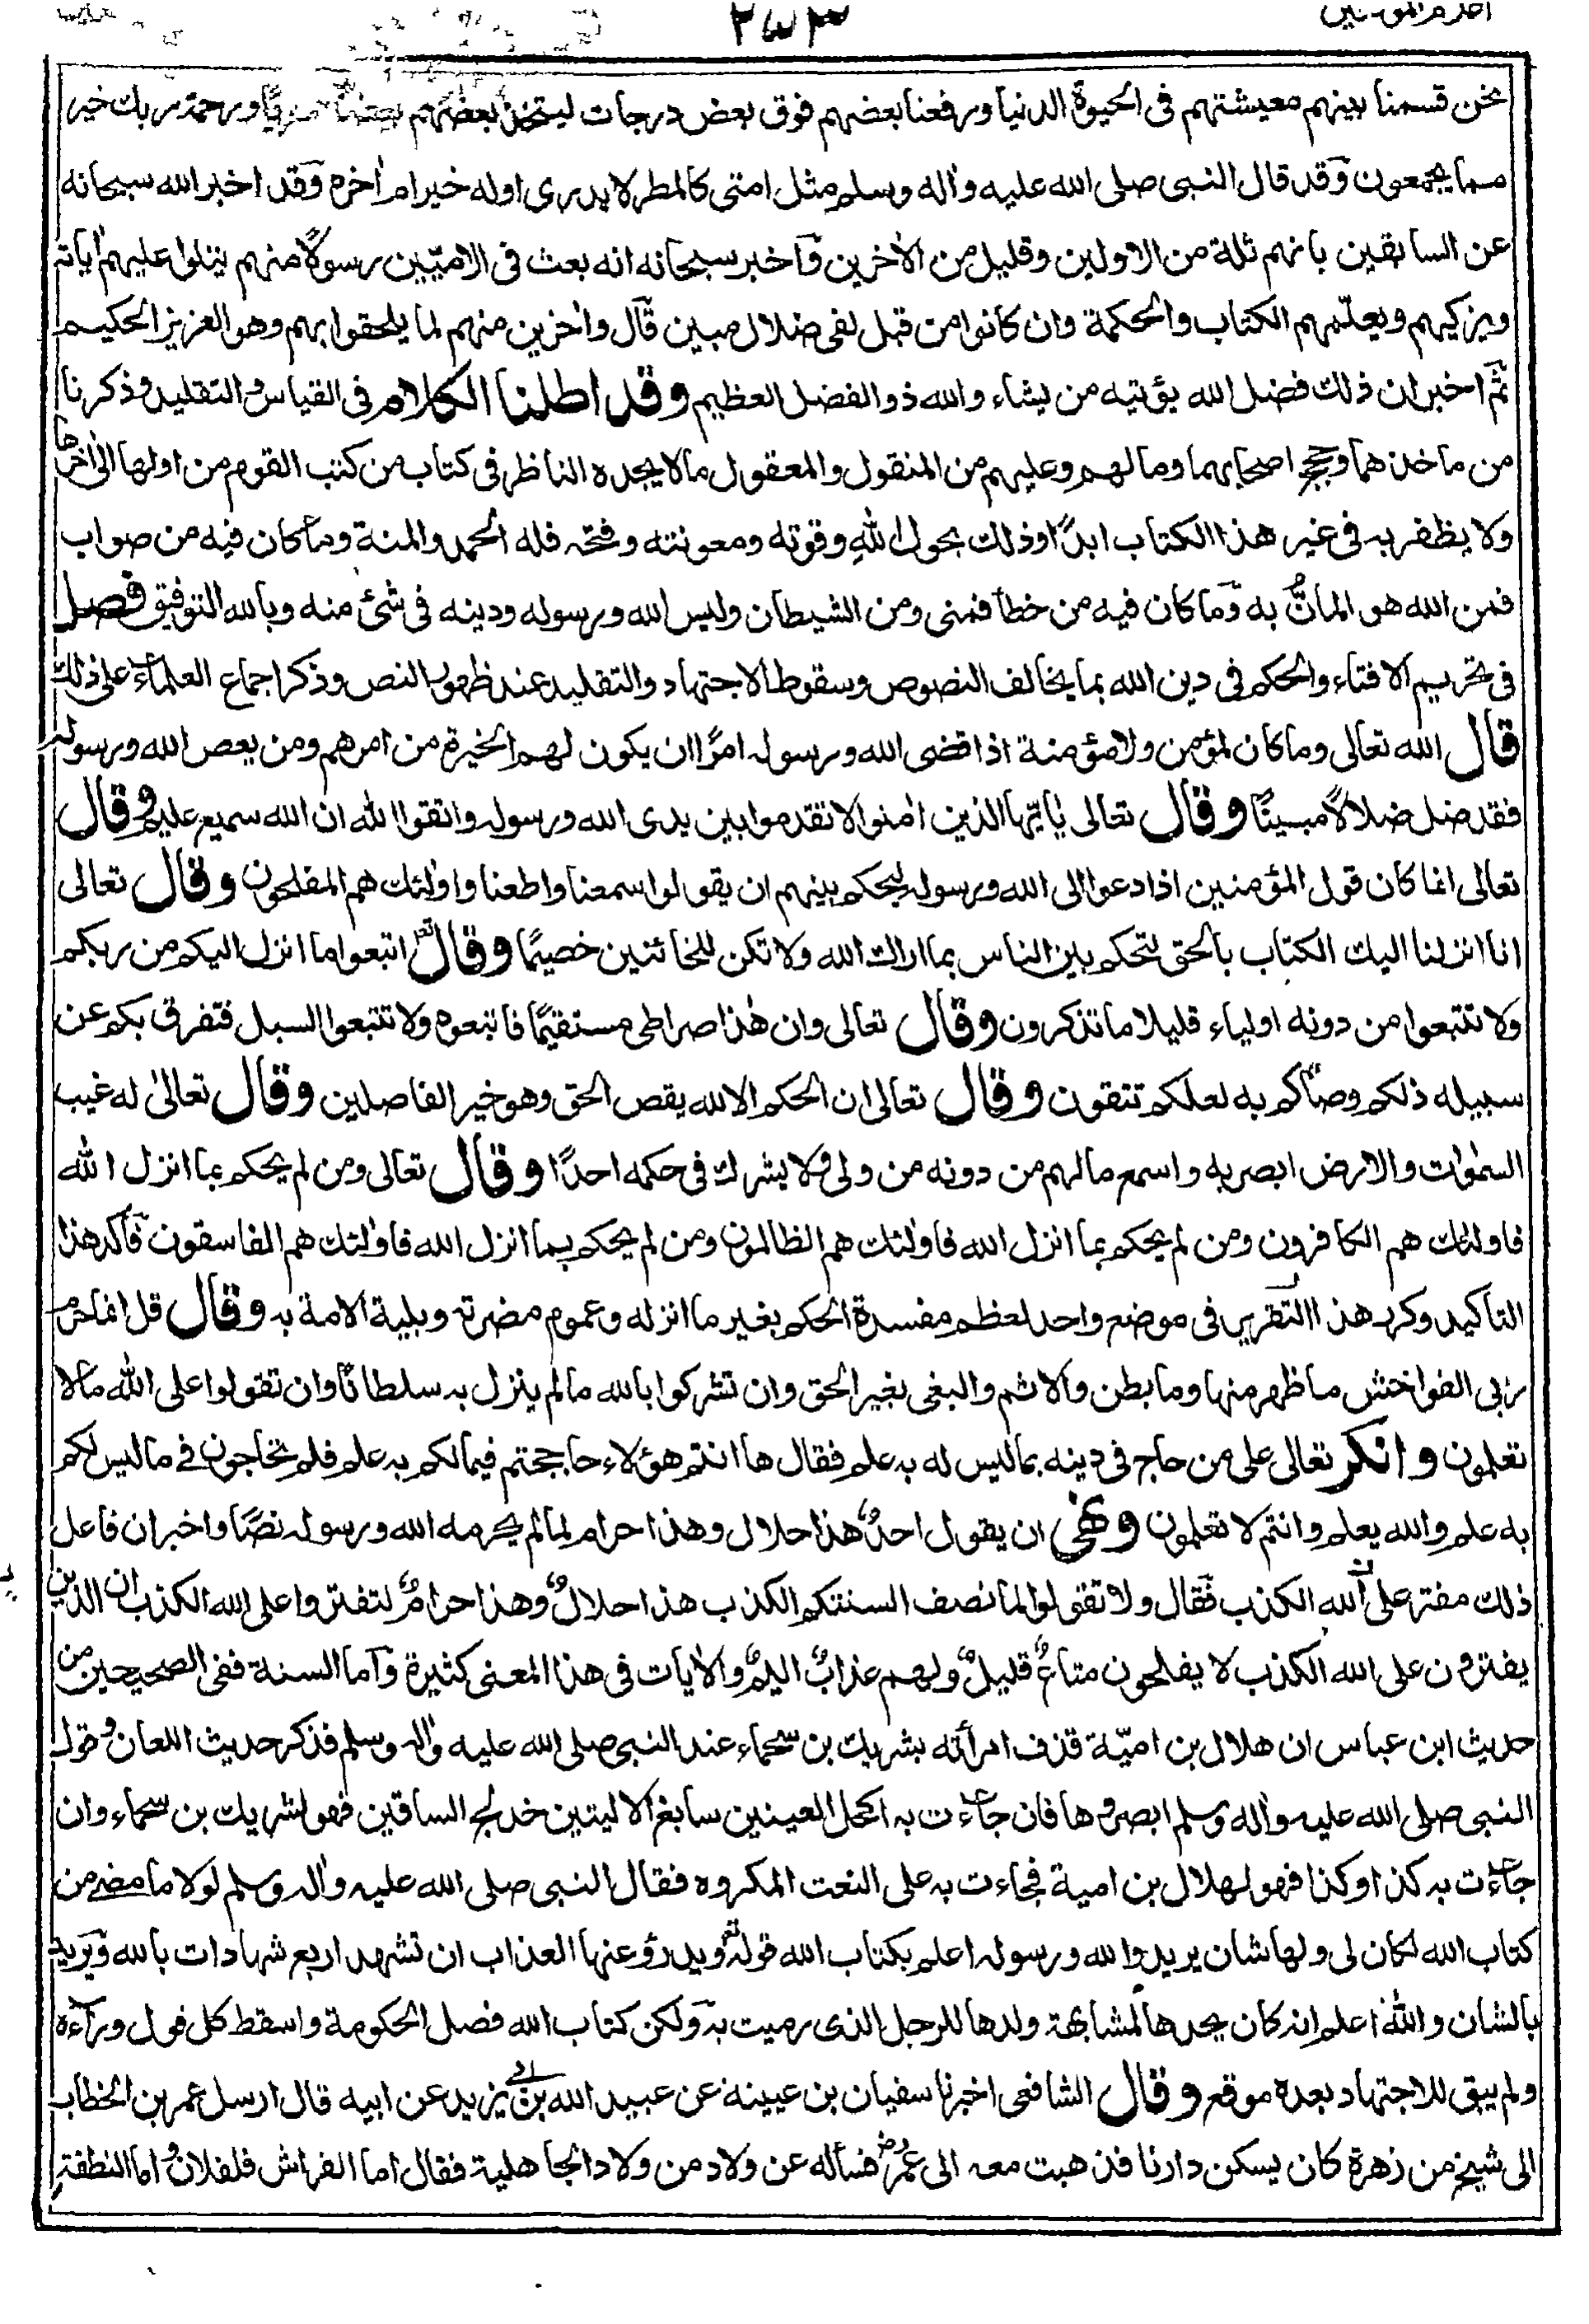 ٢٧٣
نحن قسمنا بينهم معيشتهم فى الحيوة الدنيا ورفعنا بعضهم فوق بعض درجات ليتخذ بعضهم بعضا سخريا ورحمة ربك خير
مما يجمعون وقد قال النبى صلى الله عليه واٰله وسلم مثل امتى كالمطر لا يدرى اوله خير ام اٰخره وقد اخبر الله سبحانه
عن السابقين بانهم ثلة من الاولين وقليل من الاٰخرين وأخبر سبحانه انه بعث فى الاميّين رسولًا منهم يتلوا عليهم اٰياته
ويزكيهم ويعلّمهم الكتاب والحكمة وان كانوا من قبل لفى ضلال مبين قال واٰخرين منهم لما يلحقوا بهم وهو العزيز الحكيم
ثم اخبر ان ذلك فضل الله يؤتيه من يشاء والله ذو الفضل العظيم وقد اطلنا الكلام فى القياس والتقليد وذكرنا
من ماخذهما وحجج اصحابهما وما لهم وعليهم من المنقول والمعقول ما لا يجده الناظر فى كتاب من كتب القوم من اولها الى اٰخرها
ولا يظفر به فى غير هذا الكتاب ابدًا وذلك بحول الله وقوته ومعونته وفتحه فله الحمد والمنة وما كان فيه من صواب
فمن الله هو المانُّ به وما كان فيه من خطأ فمنى ومن الشيطان وليس الله ورسوله ودينه فى شئ منه وبالله التوفيق فصل
فى تحريم الافتاء والحكم فى دين الله بما يخالف النصوص وسقوط الاجتهاد والتقليد عند ظهور النص وذكر اجماع العلماء على ذلك
قال الله تعالى وما كان لمؤمن ولا مؤمنة اذا قضى الله ورسوله امرًا ان يكون لهم الخيرة من امرهم ومن يعص الله ورسوله
فقد ضل ضلالًا مبينًا وقال تعالى يٰايّها الذين اٰمنوا لا تقدموا بين يدى الله ورسوله واتقوا الله ان الله سميع عليم وقال
تعالى انما كان قول المؤمنين اذا دعوا الى الله ورسوله ليحكم بينهم ان يقولوا سمعنا واطعنا واولٰئك هم المفلحون وقال تعالى
انا انزلنا اليك الكتاب بالحق لتحكم بين الناس بما اراك الله ولا تكن للخائنين خصيمًا وقال تعـ اتبعوا ما انزل اليكم من ربكم
ولا تتبعوا من دونه اولياء قليلا ما تذكرون وقال تعالى وان هٰذا صراطى مستقيمًا فاتبعوه ولا تتبعوا السبل فتفرق بكم عن
سبيله ذلكم وصاكم به لعلكم تتقون وقال تعالى ان الحكم الا لله يقص الحق وهو خير الفاصلين وقال تعالىٰ له غيب
السمٰوات والارض ابصر به واسمع ما لهم من دونه من ولى ولا يشرك فى حكمه احدًا وقال تعالى ومن لم يحكم بما انزل الله
فاولئك هم الكافرون ومن لم يحكم بما انزل الله فاولٰئك هم الظالمون ومن لم يحكم بما انزل الله فاولٰئك هم الفاسقون فأكد هذا
التاكيد وكرر هذا التقرير فى موضع واحد لعظم مفسدة الحكم بغير ما انزله وعموم مضرته وبلية الامة به وقال قل انما حرم
ربى الفواحش ما ظهر منها وما بطن والاثم والبغى بغير الحق وان تشركوا بالله ما لم ينزل به سلطانًا وان تقولوا على الله ما لا
تعلمون وانكر تعالى على من حاج فى دينه بما ليس له به علم فقال ها انتم هؤلاء حاججتم فيما لكم به علم فلم تحاجون فى ما ليس لكم
به علم والله يعلم وانتم لا تعلمون ونهى ان يقول احدٌ هذا حلال وهذا حرام لما لم يحرمه الله ورسوله نصًا واخبر ان فاعل
ذلك مفتر على الله الكذب فقال ولا تقولوا لما تصف السنتكم الكذب هذا حلالٌ وهذا حرامٌ لتفتروا على الله الكذب ان الذين
يفترون على الله الكذب لا يفلحون متاعٌ قليلٌ ولهم عذابٌ اليمٌ والاٰيات فى هذا المعنى كثيرة وأما السنة ففى الصحيحين من
حديث ابن عباس ان هلال بن اميّة قذف امرأته بشريك بن سحماء عند النبى صلى الله عليه واٰله وسلم فذكر حديث اللعان وقول
النبى صلى الله عليه واٰله وسلم ابصروها فان جاءت به اكحل العينين سابغ الاليتين خدلج الساقين فهو لشريك بن سحماء وان
جاءت به كذا وكذا فهو لهلال بن امية فجاءت به على النعت المكروه فقال النبى صلى الله عليه واٰله وسلم لولا ما مضى من
كتاب الله لكان لى ولها شان يريد والله ورسوله اعلم بكتاب الله قوله تعـ ويدرؤ عنها العذاب ان تشهد اربع شهادات بالله ويريد
بالشان والله اعلم انه كان يحدها لمشابهة ولدها للرجل الذى رميت به ولكن كتاب الله فصل الحكومة واسقط كل قول وراءه
ولم يبق للاجتهاد بعده موقع وقال الشافعى اخبرنا سفيان بن عيينة عن عبيد الله بن ابى يزيد عن ابيه قال ارسل عمر بن الخطاب
الى شيخ من زهرة كان يسكن دارنا فذهبت معه الى عمر رضـ فسأله عن ولاد من ولاد الجاهلية فقال اما الفراش فلفلان واما النطفة